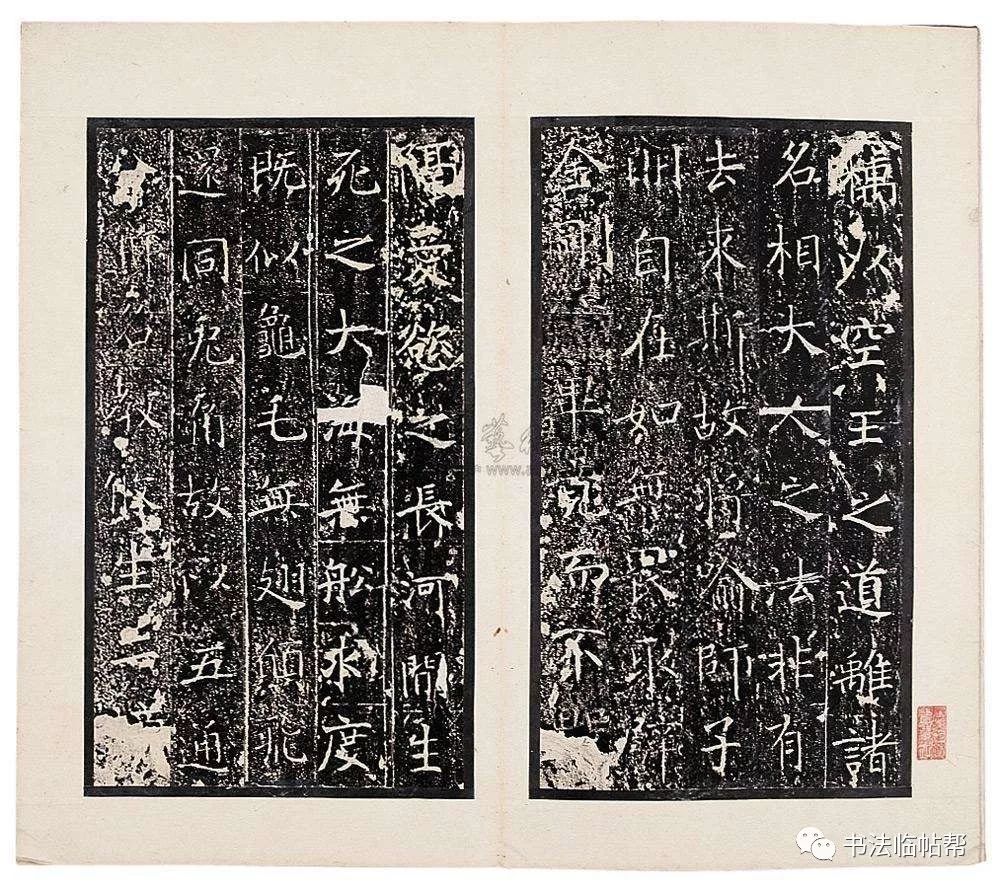 竊以空王之道離諸
名相大人之法非有
去來斯故將喻師子
明自在如無畏取譬
金剛
牢而不
愛慾之長河間生
死之大海無船求度
既似龜毛無翅願飛
還同兔角故似五通
書法临帖帮